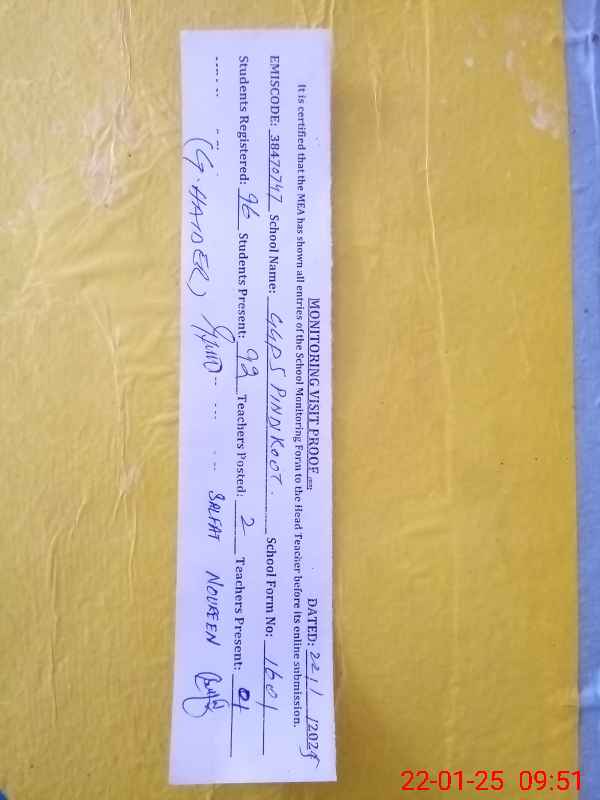 MONITORING VISIT PROOF DATED: 22/1/2025
It is certified that the MEA has shown all entries of the School Monitoring Form to the Head Teacher before its online submission.
EMISCODE: 38470747 School Name: GGPS PINDKOOT. School Form No: 1601
Students Registered: 96 Students Present: 92 Teachers Posted: 2 Teachers Present: 01
(G. HAIDER) SALFAT NOUREEN
22-01-25 09:51